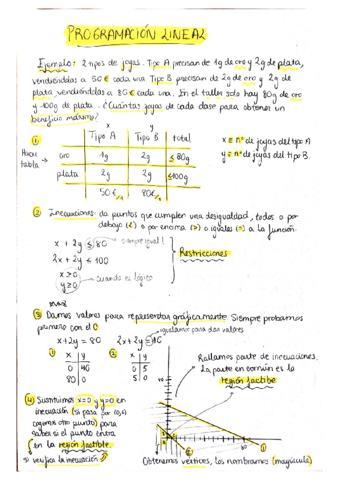 PROGRAMACIÓN LINEAL
Ejemplo: 2 tipos de joyas. Tipo A precisan de 1g de oro y 2g de plata,
vendiéndolas a 50€ cada una Tipo B precisan de 2g de oro y 2g de
plata vendiéndolas a 80€ cada una. En el taller solo hay 80g de oro
y 100g de plata. ¿Cuántas joyas de cada clase para obtener un
beneficio máximo?
① x y
Hacer tabla → Tipo A Tipo B total
oro 1g 2g ≤ 80g
plata 2g 2g ≤ 100g
50€ 80€
x = nº de joyas del tipo A
y = nº de joyas del tipo B.
② Inecuaciones: da puntos que cumplen una desigualdad, todos o por
debajo (<) o por encima (>) o iguales (=) a la función.
x + 2y ≤ 80 siempre igual!
2x + 2y ≤ 100
x ≥ 0
y ≥ 0 cuando es lógico
Restricciones
③ Damos valores para representar gráficamente Siempre probamos
primero con el 0
igualamos para dos valores
x + 2y = 80
① x y
0 40
80 0
② x y
0 5
5 0
Rallamos parte de inecuaciones.
La parte en común es la
región factible
④ Sustituimos x=0 y y=0 en
inecuación (si pasa por (0,0)
cogemos otro punto) para
saber si el punto entra
en la región factible.
si verifica la inecuación
① ②
Obtenemos vértices, los nombramos (mayúscula)